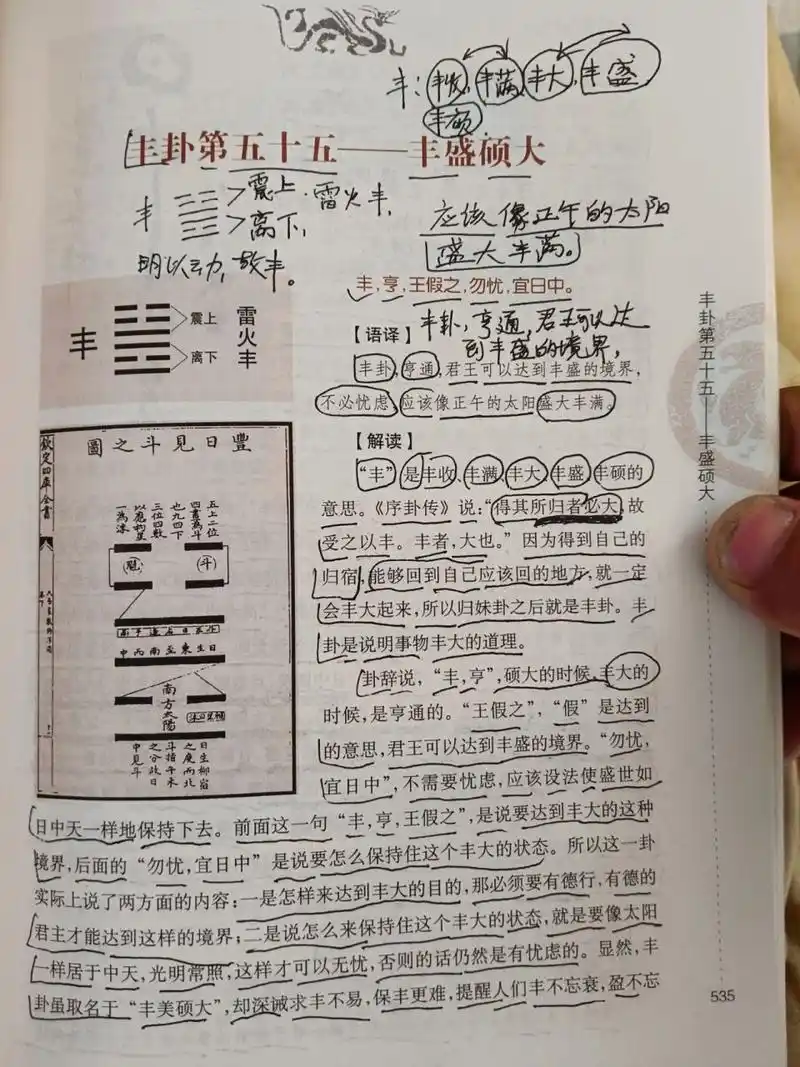 丰：丰收，丰满，丰大，丰盛
丰硕
丰卦第五十五——丰盛硕大
丰 震上·雷火丰，
离下，
明以动，故丰。
应该像正午的太阳
盛大丰满。
丰，亨，王假之，勿忧，宜日中。
丰 震上 离下 雷火丰
【语译】
丰卦，亨通，君王可以达
到丰盛的境界，
丰卦，亨通，君王可以达到丰盛的境界，
不必忧虑，应该像正午的太阳盛大丰满。
【解读】
“丰”是丰收、丰满、丰大、丰盛、丰硕的
意思。《序卦传》说：“得其所归者必大，故
受之以丰。丰者，大也。”因为得到自己的
归宿，能够回到自己应该回的地方，就一定
会丰大起来，所以归妹卦之后就是丰卦。丰
卦是说明事物丰大的道理。
卦辞说，“丰，亨”，硕大的时候，丰大的
时候，是亨通的。“王假之”，“假”是达到
的意思，君王可以达到丰盛的境界。“勿忧，
宜日中”，不需要忧虑，应该设法使盛世如
日中天一样地保持下去。前面这一句“丰，亨，王假之”，是说要达到丰大的这种
境界，后面的“勿忧，宜日中”是说要怎么保持住这个丰大的状态。所以这一卦
实际上说了两方面的内容：一是怎样来达到丰大的目的，那必须要有德行，有德的
君主才能达到这样的境界；二是说怎么来保持住这个丰大的状态，就是要像太阳
一样居于中天，光明常照，这样才可以无忧，否则的话仍然是有忧虑的。显然，丰
卦虽取名于“丰美硕大”，却深诫求丰不易，保丰更难，提醒人们丰不忘衰，盈不忘
圖之斗見日豐
欽定四庫全書
五上二位
四畫為斗
也九四下
三位四數
以為魁星
斗
中丙南至東生日
南方太陽
日生柳宿
之度而北
斗指午未
之分故日
中見斗
丰卦第五十五——丰盛硕大
535